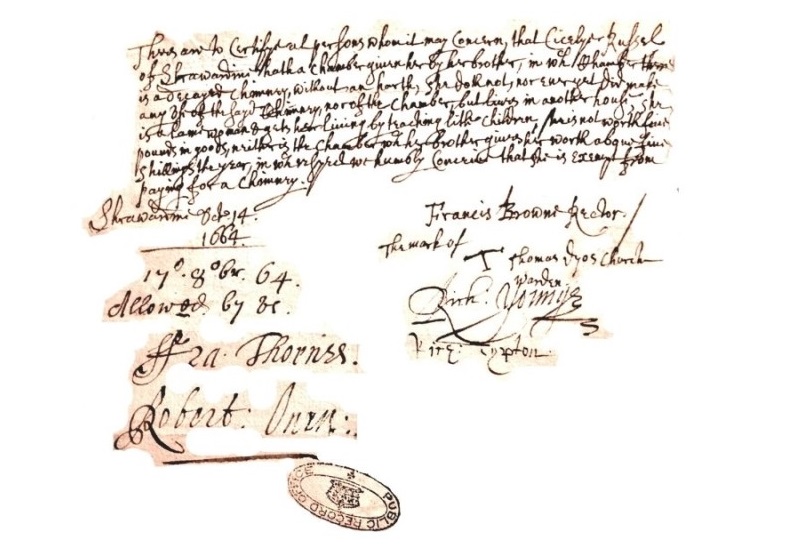 These are to Certifye al persons whom it may Concern, that Cicelye Russel
of Shrawardine hath a Chamber given her by her brother, in wh Chamber there
is a decayed Chimney, without an harth, She doth not, nor ever yet did make
any use of the sayd Chimney, nor of the Chamber, but lives in another house, She
is a Lame woman & gets her living by teaching little Children, She is not worth five
pounds in goods neither is the Chamber wh her brother gives her worth above five
Shillings the year, in wh respect we humbly Conceive that she is Exempt from
paying for a Chimney.
Shrawardine Octo 14.
1664.
Francis Browne Rector.
The mark of
T Thomas Dyos Church
warden
17o. 8obr. 64.
Allowed by us.
Rich. Younge
Rice: Typton
Ffra. Thornes.
Robert: Owen:
PUBLIC RECORD OFFICE